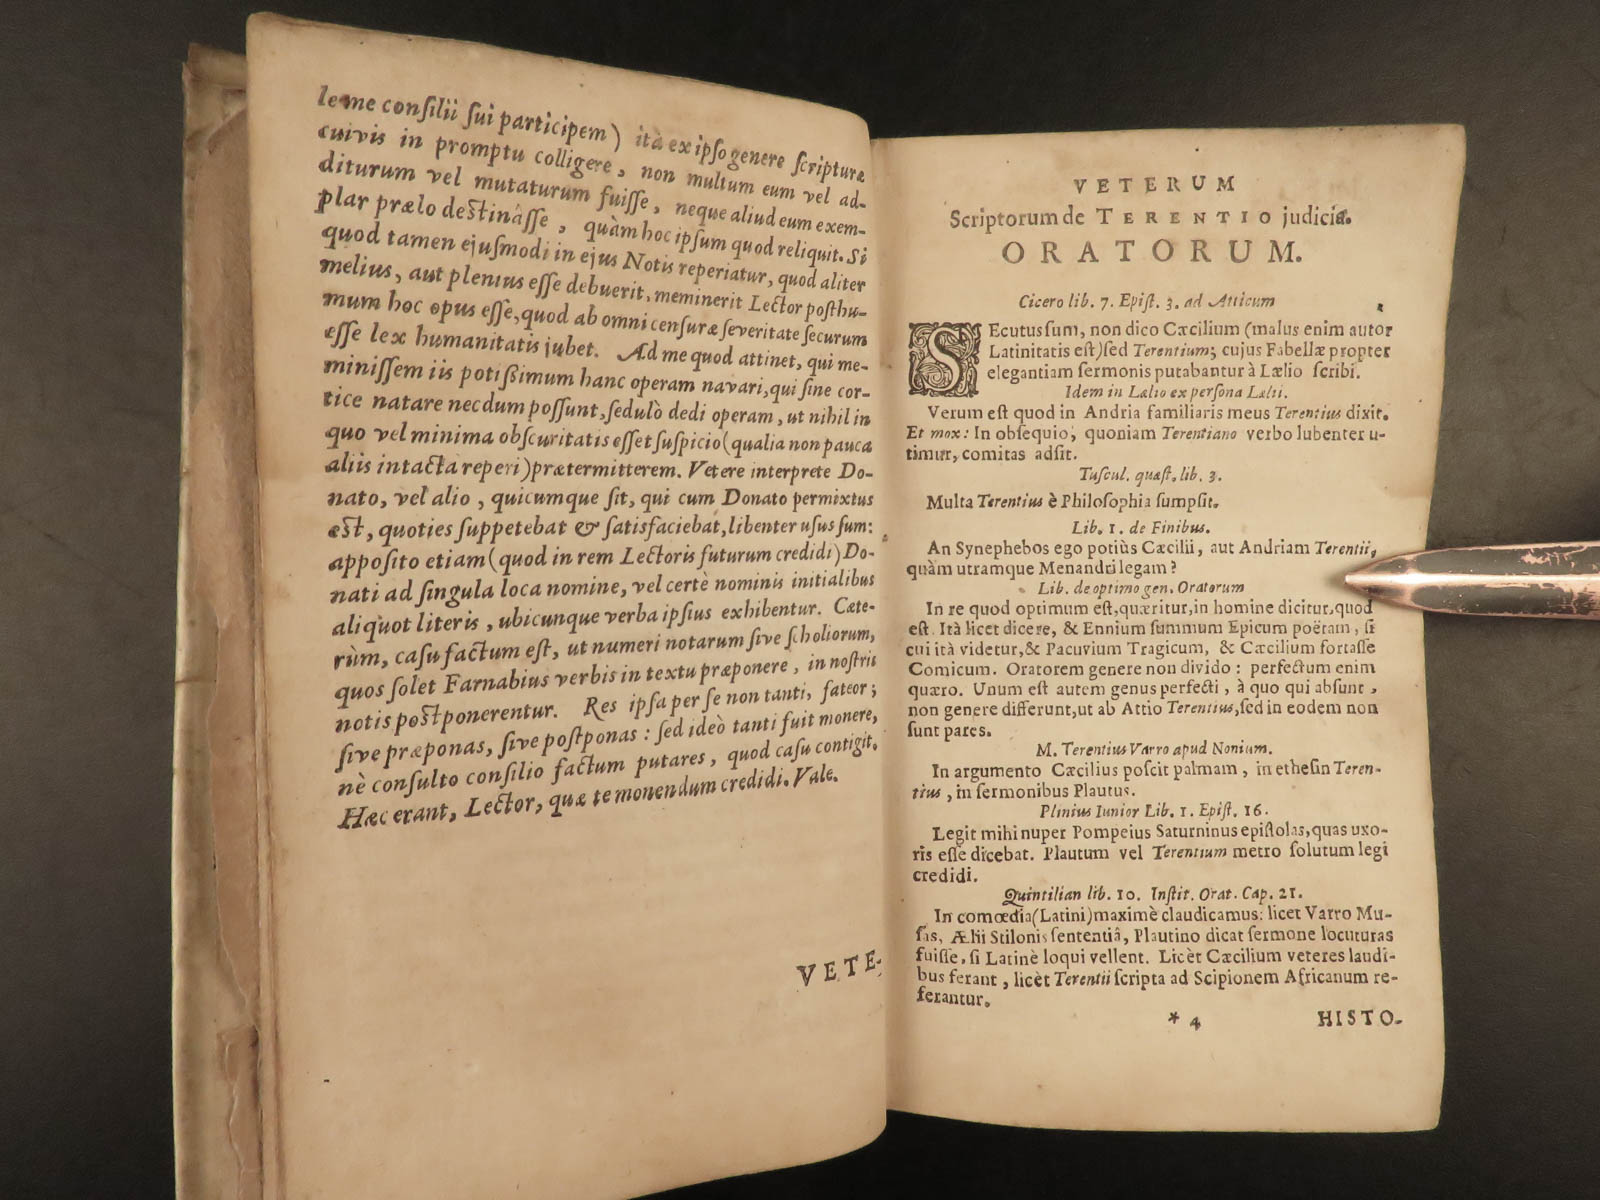 le me conſilii ſui participem) ità ex ipſo genere ſcripturæ
cuivis in promptu colligere, non multum eum vel ad-
diturum vel mutaturum fuiſſe, neque aliud eum exem-
plar prælo deſtinâſſe, quàm hoc ipſum quod reliquit. Si
quod tamen ejuſmodi in ejus Notis reperiatur, quod aliter
melius, aut plenius eſſe debuerit, meminerit Lector poſthu-
mum hoc opus eſſe, quod ab omni cenſuræ ſeveritate ſecurum
eſſe lex humanitatis jubet. Ad me quod attinet, qui me-
miniſſem iis potiſſimum hanc operam navari, qui ſine cor-
tice natare necdum poſſunt, ſedulò dedi operam, ut nihil in
quo vel minima obſcuritatis eſſet ſuſpicio (qualia non pauca
aliis intacta reperi) prætermitterem. Vetere interprete Do-
nato, vel alio, quicumque ſit, qui cum Donato permixtus
eſt, quoties ſuppetebat & ſatisfaciebat, libenter uſus ſum:
appoſito etiam (quod in rem Lectoris futurum credidi) Do-
nati ad ſingula loca nomine, vel certè nominis initialibus
aliquot literis, ubicunque verba ipſius exhibentur. Cæte-
rùm, caſu factum eſt, ut numeri notarum ſive ſcholiorum,
quos ſolet Farnabius verbis in textu præponere, in noſtris
notis poſtponerentur. Res ipſa per ſe non tanti, fateor;
ſive præponas, ſive poſtponas: ſed ideò tanti fuit monere,
nè conſulto conſilio factum putares, quod caſu contigit.
Hæc erant, Lector, quæ te monendum credidi. Vale.
VETE-
VETERUM
Scriptorum de TERENTIO judicia.
ORATORUM.
Cicero lib. 7. Epiſt. 3. ad Atticum
SEcutus ſum, non dico Cæcilium (malus enim autor
Latinitatis eſt) ſed Terentium; cujus Fabellæ propter
elegantiam ſermonis putabantur à Lælio ſcribi.
Idem in Lælio ex perſona Lælii.
Verum eſt quod in Andria familiaris meus Terentius dixit.
Et mox: In obſequio, quoniam Terentiano verbo lubenter u-
timur, comitas adſit.
Tuſcul. quæſt. lib. 3.
Multa Terentius è Philoſophia ſumpſit.
Lib. 1. de Finibus.
An Synephebos ego potiùs Cæcilii, aut Andriam Terentii,
quàm utramque Menandri legam?
Lib. de optimo gen. Oratorum
In re quod optimum eſt, quæritur, in homine dicitur, quod
eſt. Ità licet dicere, & Ennium ſummum Epicum poëtam, ſi
cui ità videtur, & Pacuvium Tragicum, & Cæcilium fortaſſe
Comicum. Oratorem genere non divido: perfectum enim
quæro. Unum eſt autem genus perfecti, à quo qui abſunt,
non genere differunt, ut ab Attio Terentius, ſed in eodem non
ſunt pares.
M. Terentius Varro apud Nonium.
In argumento Cæcilius poſcit palmam, in etheſin Teren-
tius, in ſermonibus Plautus.
Plinius Iunior Lib. 1. Epiſt. 16.
Legit mihi nuper Pompeius Saturninus epiſtolas, quas uxo-
ris eſſe dicebat. Plautum vel Terentium metro ſolutum legi
credidi.
Quintilian lib. 10. Inſtit. Orat. Cap. 21.
In comœdia (Latini) maximè claudicamus: licet Varro Mu-
ſas, Ælii Stilonis ſententiâ, Plautino dicat ſermone locuturas
fuiſſe, ſi Latinè loqui vellent. Licèt Cæcilium veteres laudi-
bus ferant, licèt Terentii ſcripta ad Scipionem Africanum re-
ferantur.
* 4 HISTO-